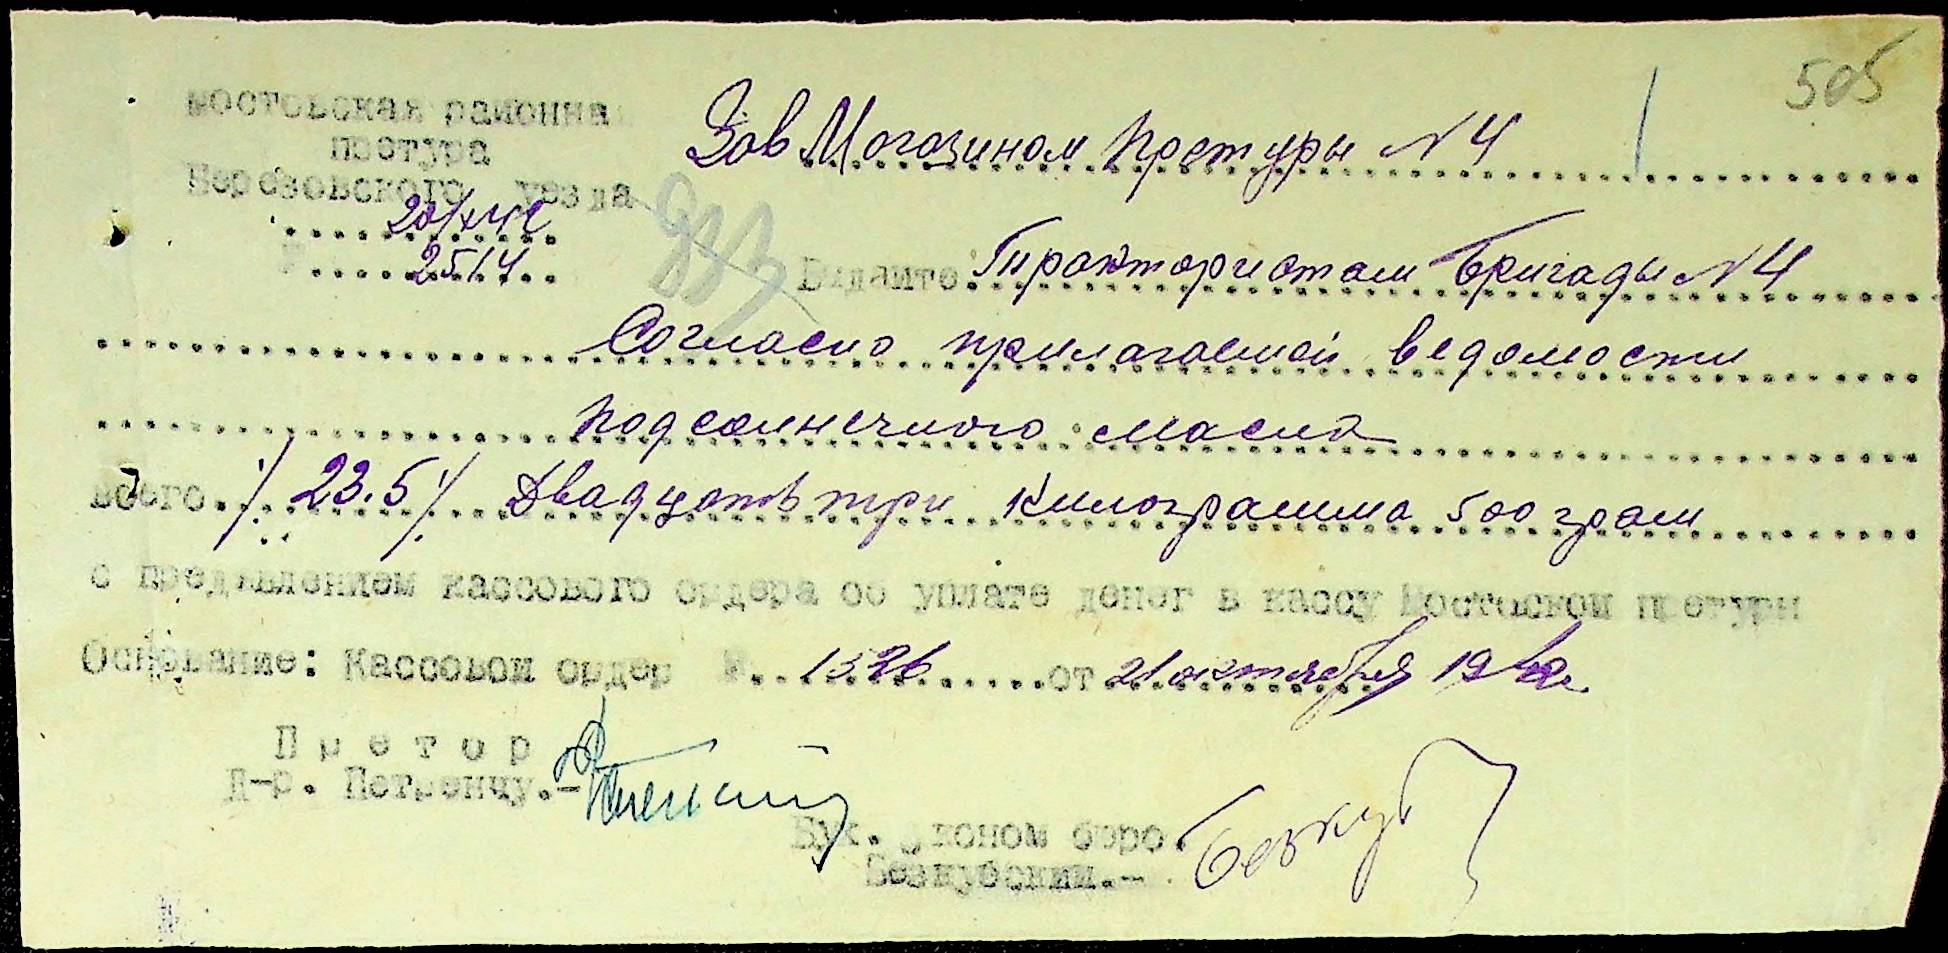 505
Мостовская районна
претура
Березовского уезда
20/X 42
№ 2514
Зав Могозином Претуры №4
Выдайте: Трактористам Бригады №4
Согласно прилагаемой ведомости
подсолнечного масла
всего 23.5 Двадцать три килограмма 500 грам
с предявлением кассового ордера об уплате денег в кассу Мостовской претури
Основание: Кассовой ордер № 1526 от 21 октября 1942г.
Претор
Д-р. Петренцу.-
Бух. эконом бюро.
Безкубский.-